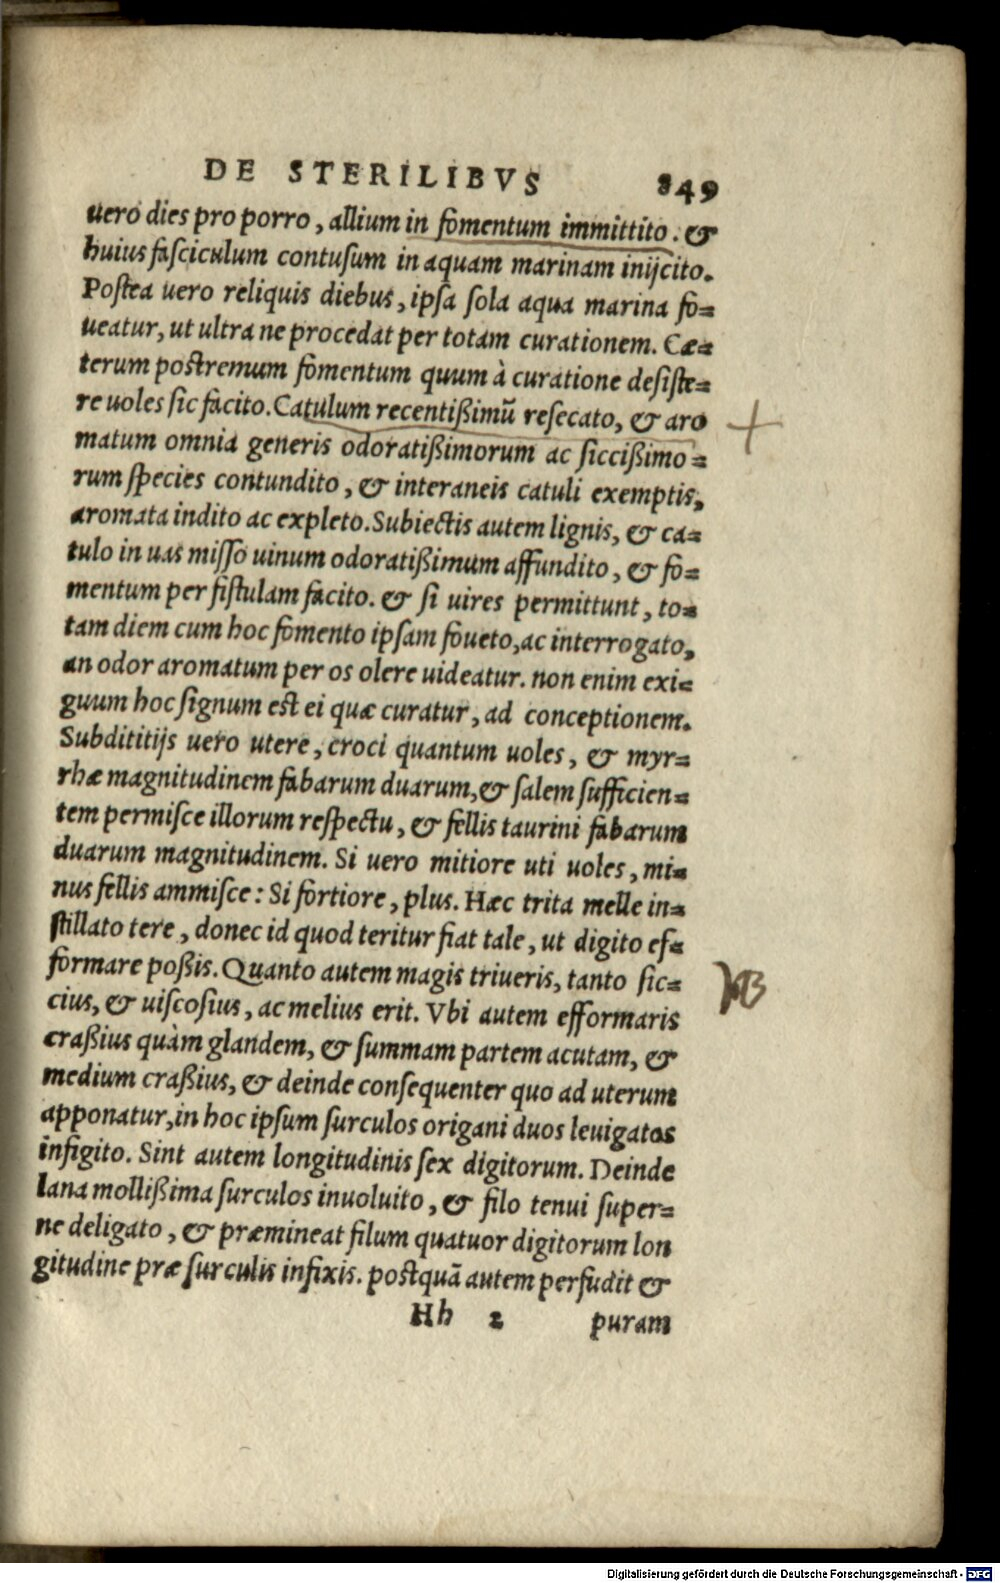 DE STERILIBVS 849
uero dies pro porro, allium in fomentum immittito. &
huius fasciculum contusum in aquam marinam inijcito.
Postea uero reliquis diebus, ipsa sola aqua marina fo=
ueatur, ut ultra ne procedat per totam curationem. Cæ=
terum postremum fomentum quum à curatione desiste=
re uoles sic facito. Catulum recentißimũ resecato, & aro
matum omnia generis odoratißimorum ac siccißimo=
rum species contundito, & interaneis catuli exemptis,
aromata indito ac expleto. Subiectis autem lignis, & ca=
tulo in uas misso uinum odoratißimum affundito, & fo=
mentum per fistulam facito. & si uires permittunt, to=
tam diem cum hoc fomento ipsam foueto, ac interrogato,
an odor aromatum per os olere uideatur. non enim exi=
guum hoc signum est ei quæ curatur, ad conceptionem.
Subdititijs uero utere, croci quantum uoles, & myr=
rhæ magnitudinem fabarum duarum, & salem sufficien=
tem permisce illorum respectu, & fellis taurini fabarum
duarum magnitudinem. Si uero mitiore uti uoles, mi=
nus fellis ammisce: Si fortiore, plus. Hæc trita melle in=
stillato tere, donec id quod teritur fiat tale, ut digito ef=
formare poßis. Quanto autem magis triueris, tanto sic=
cius, & uiscosius, ac melius erit. Vbi autem efformaris
craßius quàm glandem, & summam partem acutam, &
medium craßius, & deinde consequenter quo ad uterum
apponatur, in hoc ipsum surculos origani duos leuigatos
infigito. Sint autem longitudinis sex digitorum. Deinde
lana mollißima surculos inuoluito, & filo tenui super=
ne deligato, & præmineat filum quatuor digitorum lon
gitudine præ surculis infixis. postquã autem perfudit &
Hh 2 puram
+
NB
Digitalisierung gefördert durch die Deutsche Forschungsgemeinschaft - DFG